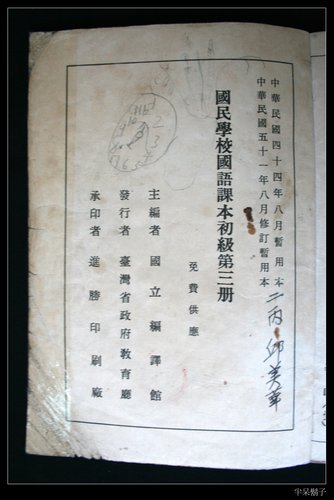 中華民國四十四年八月暫用本
中華民國五十一年八月修訂暫用本
二丙 邱美華
國民學校國語課本初級第三册
免費供應
主編者 國立編譯館
發行者 臺灣省政府教育廳
承印者 進勝印刷廠
半呆鬍子